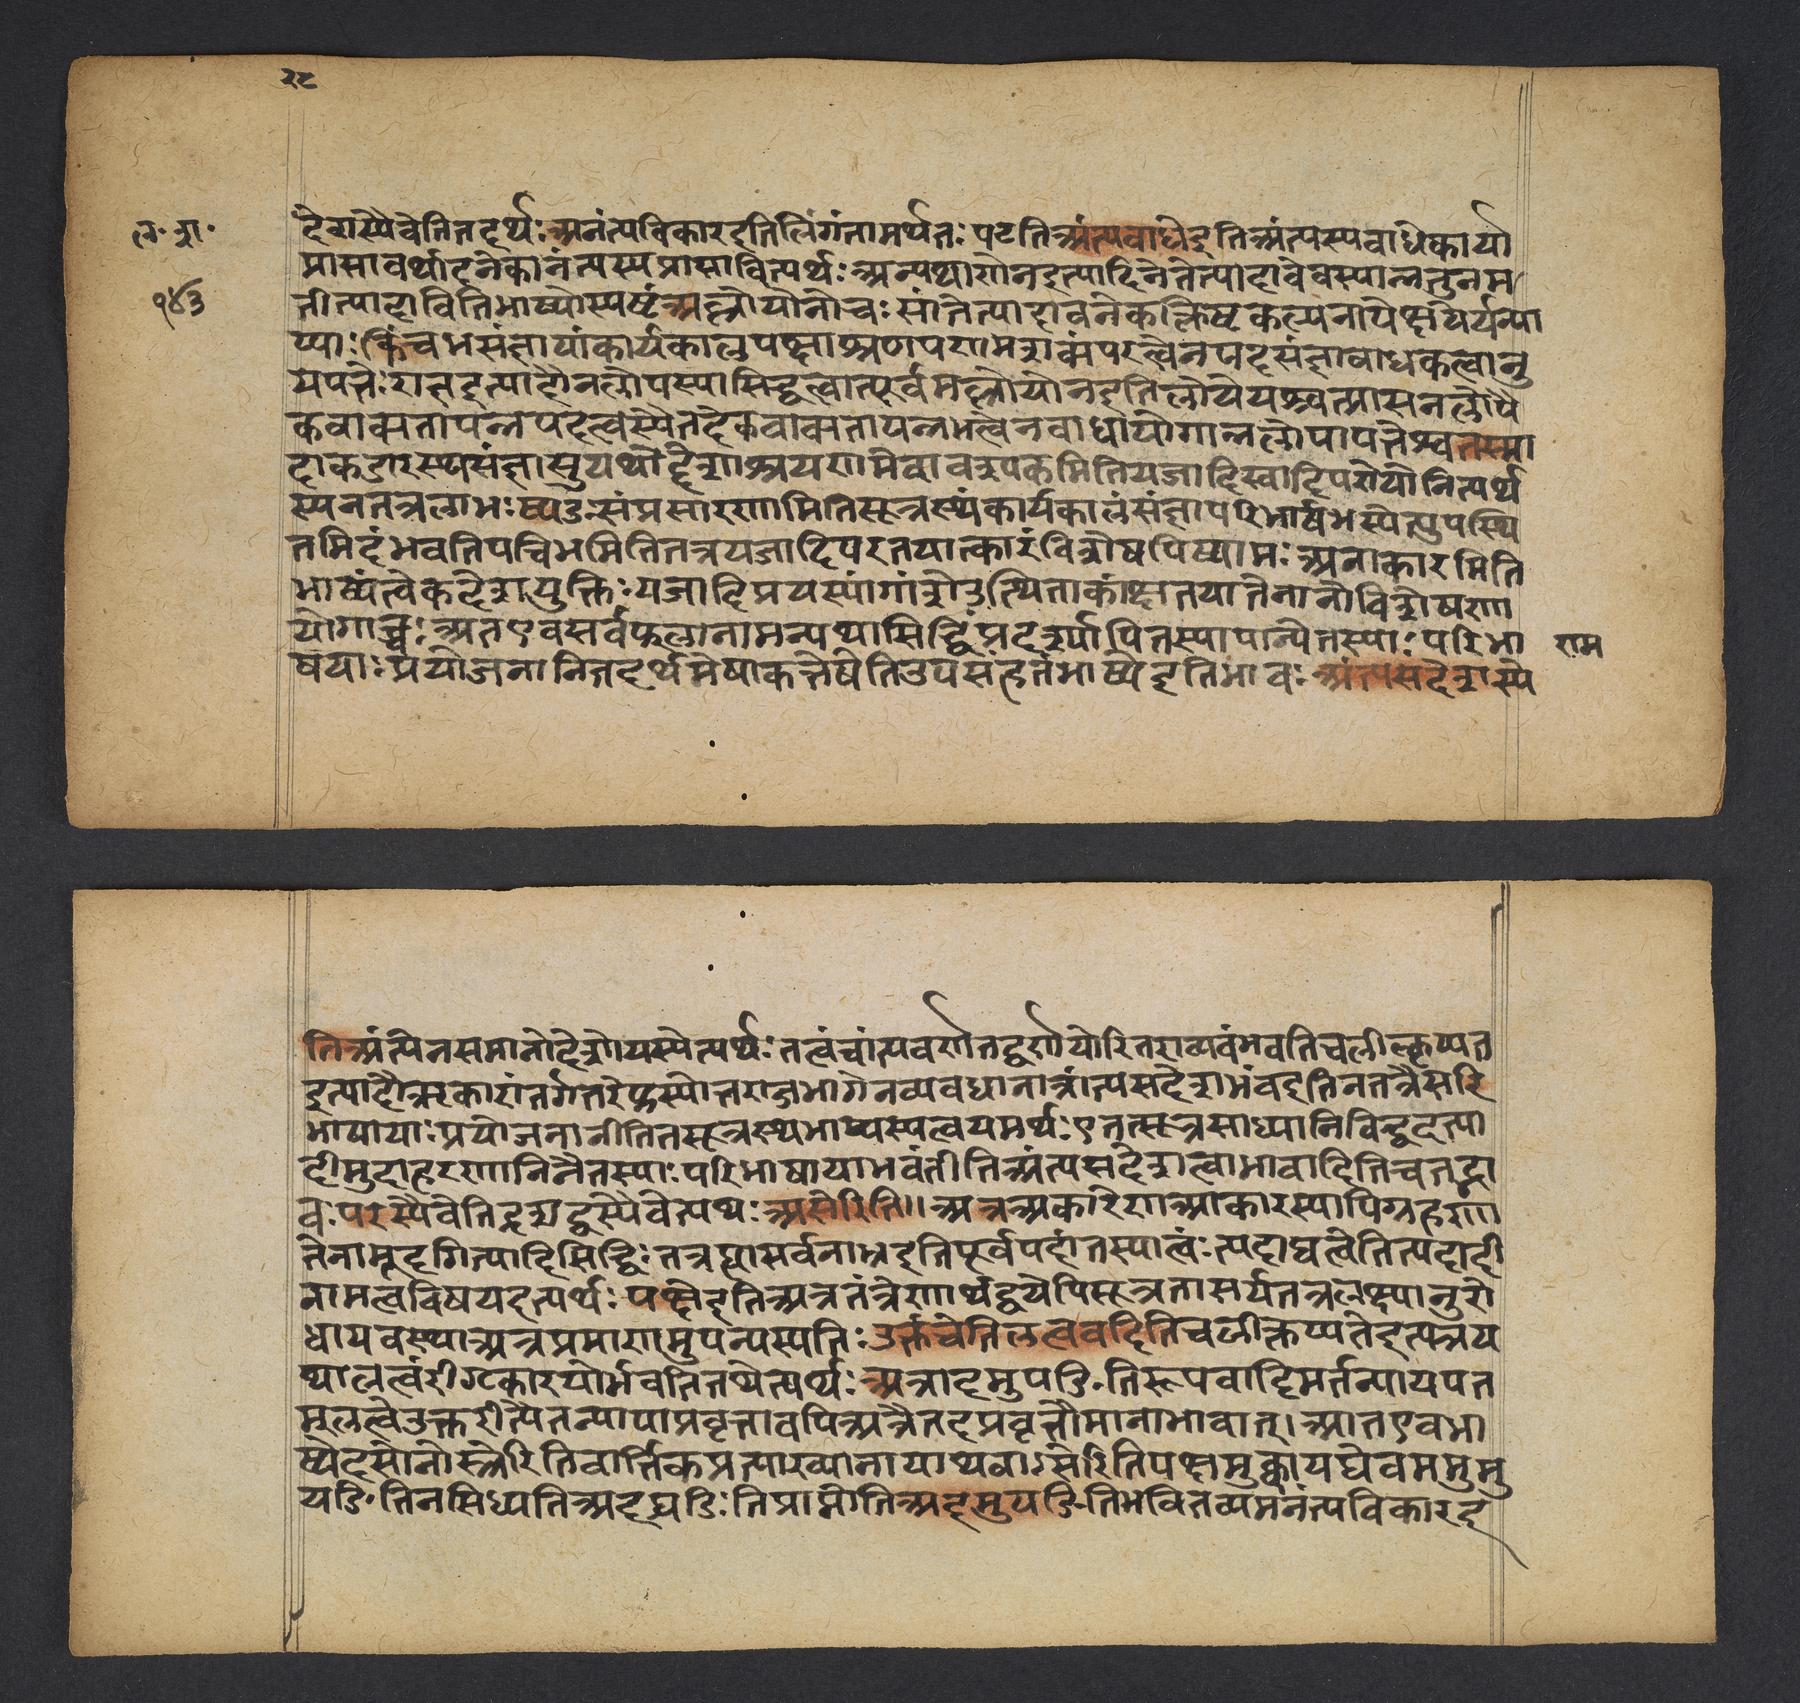 २८
ल॰ श॰
देशस्यैवेतितदर्थः अनंत्यविकारइतिलिंगंनामर्थतः पठतिअंत्यबाधेइतिअंत्यस्यबाधेकार्या
प्रासावर्थादनेकानंत्यस्यप्रासावित्यर्थः अन्यथाशेनइत्यादिनेतेत्यादावेवस्यान्नतुनम
१४३
तीत्यादावितिभाष्योस्पष्टंअल्लोपोनोचः सांतेत्यादावनेकक्लिष्टकल्पनापेक्षयेर्यन्या
य्याः किंचभसंज्ञायांकार्यकालपक्षाश्रयणमशक्यंपरत्वेनपदसंज्ञाबाधकत्वानु
पपत्तेः राज्ञइत्यादौनलोपस्यासिद्धत्वात्पूर्वमल्लोपोनइतिलोपेपश्चत्प्रासनलोपै
कवाक्यतापन्नपदत्वस्यैतदेकवाक्यतापन्नभत्वेनबाधायोगान्नलोपापत्तेश्चतस्मा
दाकडारस्थसंज्ञासुयथोद्देशाश्रयणमेवावश्यकमितियजादिस्वादिपरोयोनित्यर्थ
स्यनतत्रलाभः ष्यङः संप्रसारणमितिसूत्रस्थंकार्यकालंसंज्ञापरिभाषंभस्येत्युपस्थि
तमिदंभवतिपचिभमितितत्रयजादिपरतयात्कारंविशेषयिष्यामः अनाकारमिति
भाष्यंत्वेकदेशयुक्तिः यजादिप्रयस्यांगांशेउत्थिताकांक्षातयातेनानोविशेषणा
योगाच्चः अतएवसर्वफलानामन्यथासिद्धिंप्रदर्श्यापितस्यापान्येतस्याः परिभा
राम
षयाः प्रयोजनानितदर्थमेषाकर्तेषेतिउपसंहृतंभाष्येइतिभावः अंत्यसदेशस्ये
तिअंत्येनसमानोदेशोयस्येत्यर्थः तत्वंचांत्यवर्णतद्वर्णयोरितराव्यवंभवतिचलीकॢप्यत
इत्यादौऋकारांतर्गतरेफस्योत्तराज्भागेनव्यवधानान्नांत्यसदेशभंवइतिनतत्रैसरि
भाषायाः प्रयोजनानीतितसूत्रस्थभाष्यस्यत्वयमर्थः एतत्सूत्रसाध्यानिविद्धइत्या
दीमुदाहरणानिनैतस्याः परिभाषायाभवंतीतिअंत्यसदेशत्वाभावादितिचतद्भा
वः परस्यैवेतिदृश्यद्धस्यैवेत्यथः असेरिति॥ अत्रअकारेणआकारस्यापिग्रहणा
तेनामुदृगित्यादिसिद्धिः तत्रह्यासर्वनाम्नइतिपूर्वपदांतस्यात्वं त्यदाद्यत्वेतित्यदादी
नामत्वविषयइत्यर्थः पक्षेइतिअत्रतंत्रेणार्थद्वयेपिसूत्रतासर्यतत्रलक्ष्यानुरो
धायवस्थाअत्रप्रमाणमुपन्यस्यतिः उक्तंचेतिलत्ववदितिचलीकॢप्यतेइत्यत्रय
थालत्वंरीऋकारयोर्भवतितथेत्यर्थः अत्रादमुयङितिरूपवादिमर्तन्यायपत
मूलत्वेउक्तरीत्यैतन्यायाप्रवृत्तावपिअत्रैतदप्रवृत्तौमानाभावात्। आतएवभा
ष्येदसोनोस्त्रेरितिवार्त्तिकप्रत्याख्यानायाथवाऽसेरितिपक्षमुक्त्वायद्येवममुमु
यङितिनसिध्यतिअदद्र्यङितिप्राप्नोतिअदमुयङितिभवितव्यमनंत्यविकारइ